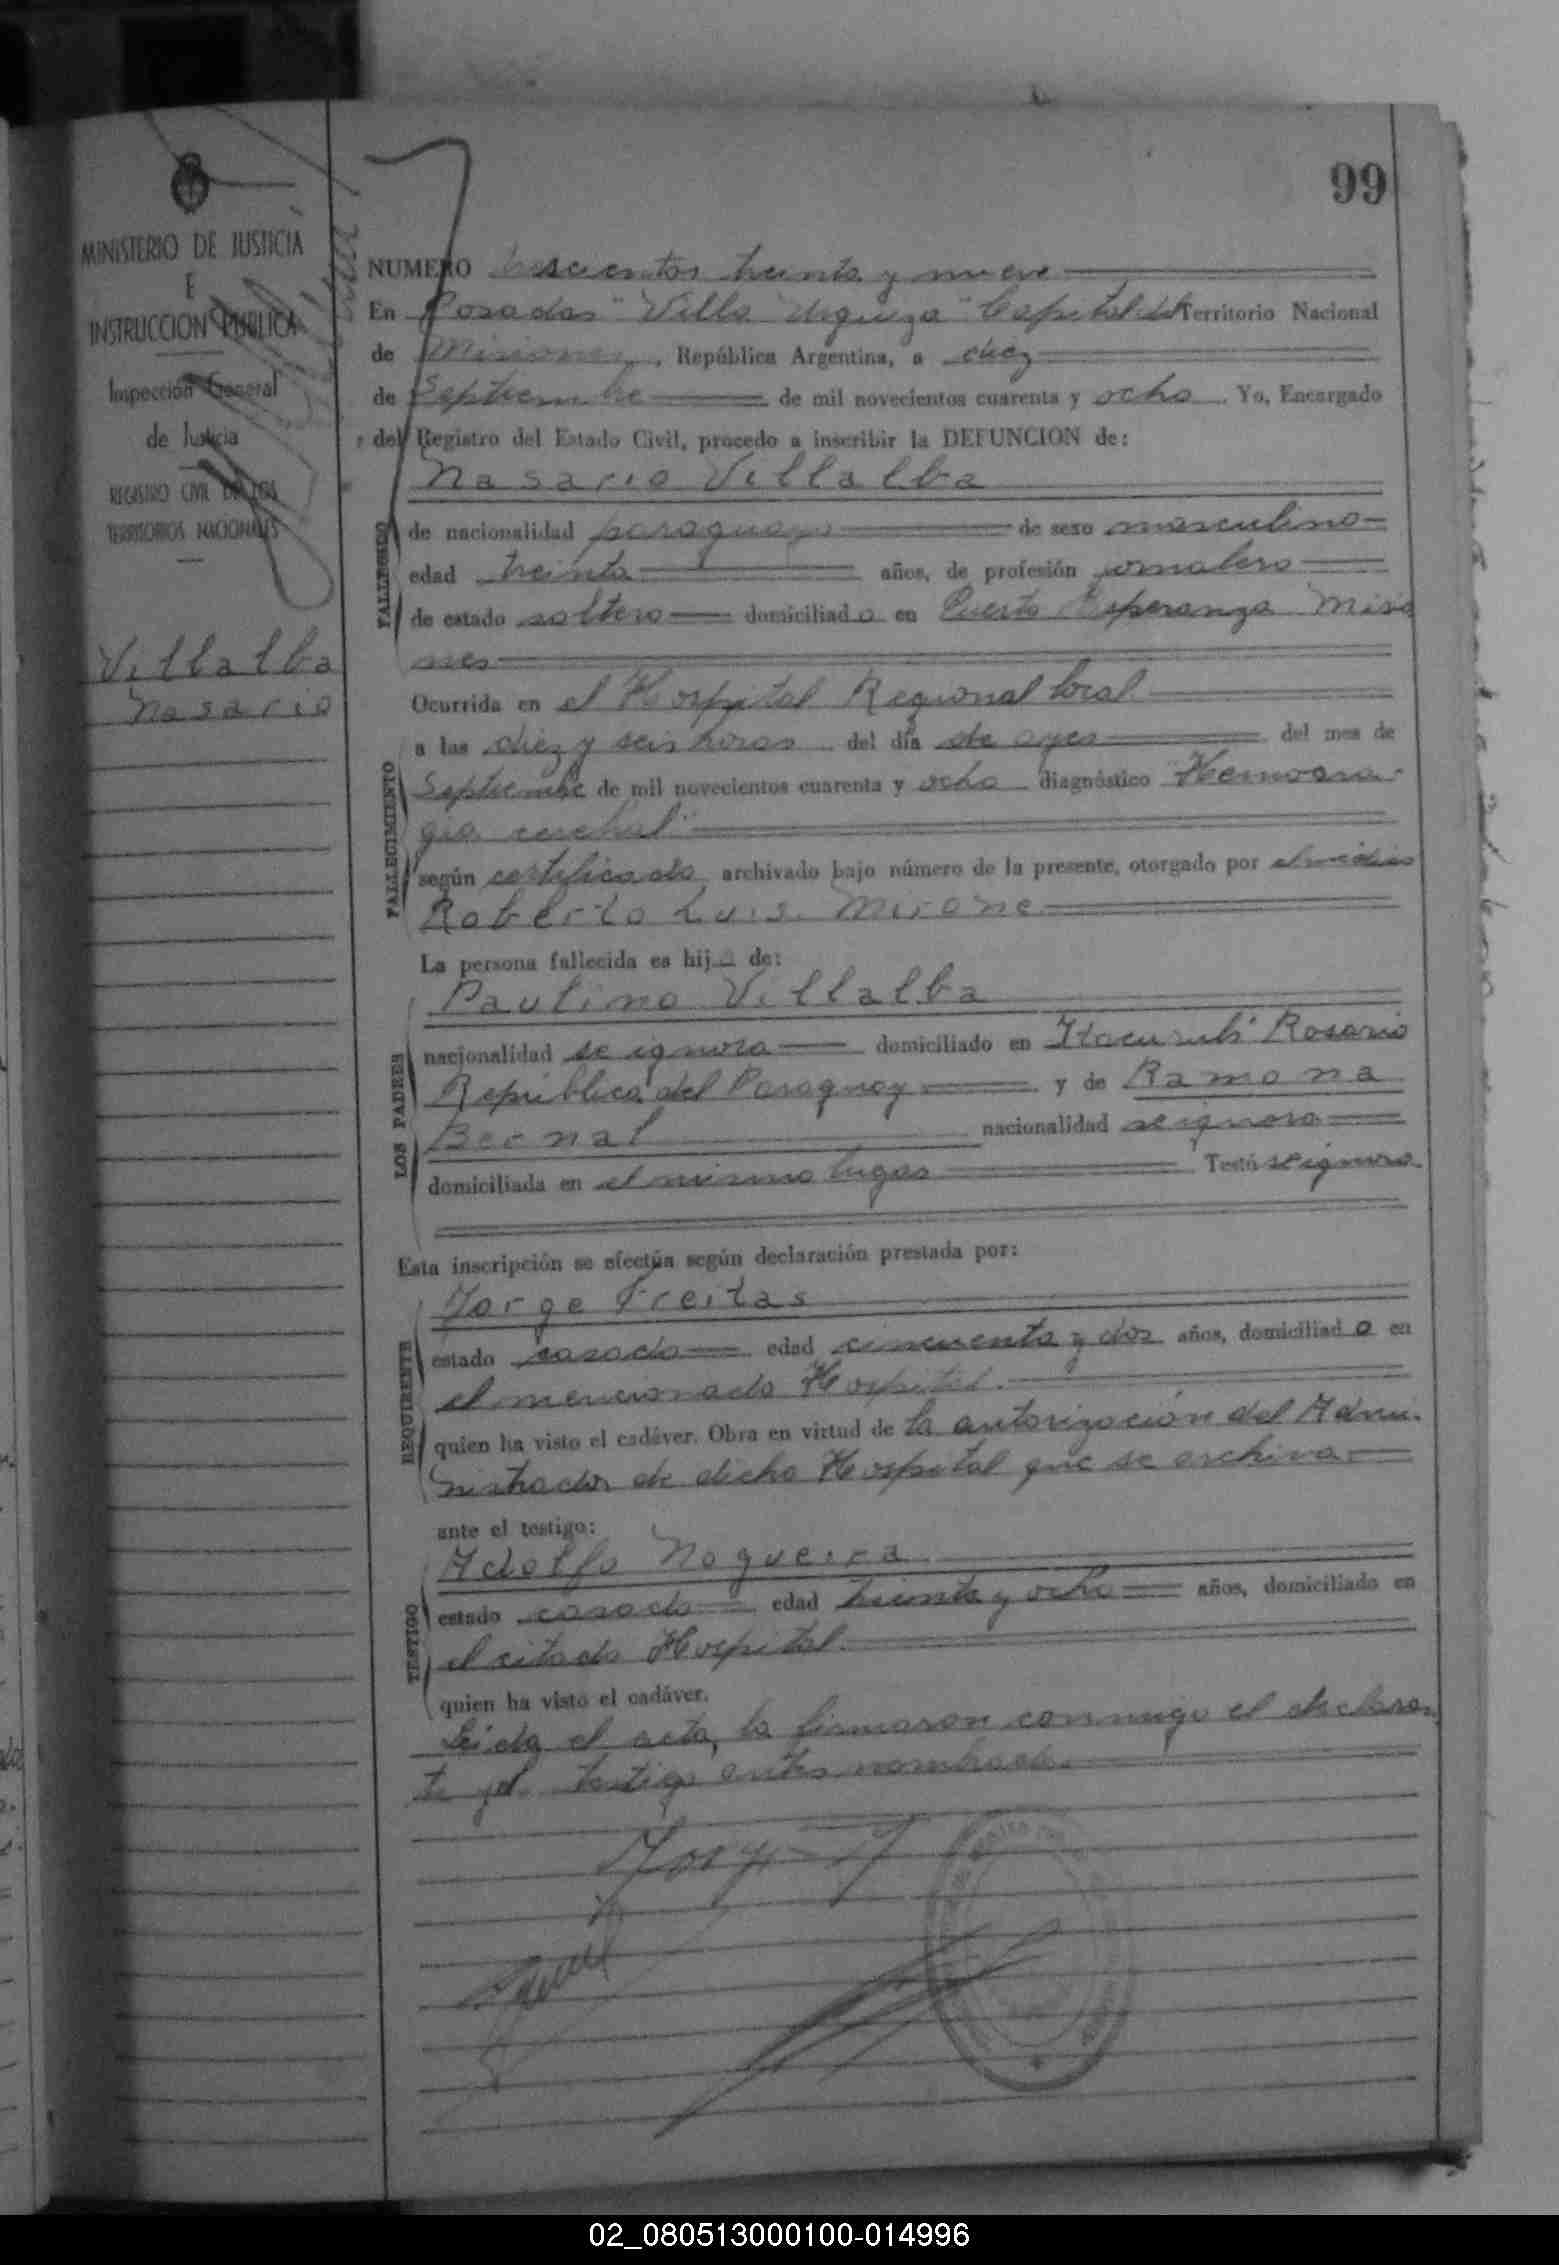 99
MINISTERIO DE JUSTICIA
E
INSTRUCCION PUBLICA
Inspección General
de Justicia
REGISTRO CIVIL DE LOS
TERRITORIOS NACIONALES
Villalba
Nasario
NUMERO trescientos treinta y nueve
En Posadas "Villa Urquiza" Capital del Territorio Nacional
de Misiones, República Argentina, a diez
de Septiembre de mil novecientos cuarenta y ocho. Yo, Encargado
del Registro del Estado Civil, procedo a inscribir la DEFUNCION de:
FALLECIDO
Nasario Villalba
de nacionalidad paraguayo de sexo masculino
edad treinta años, de profesión jornalero
de estado soltero domiciliado en Puerto Esperanza Misio
nes
FALLECIMIENTO
Ocurrida en el Hospital Regional local
a las diez y seis horas del día de ayer del mes de
Septiembre de mil novecientos cuarenta y ocho diagnóstico "Hemorra-
gia cerebral"
según certificado archivado bajo número de la presente, otorgado por el médico
Roberto Luis Mirone
La persona fallecida es hijo de:
LOS PADRES
Paulino Villalba
nacionalidad se ignora domiciliado en Itacurubí Rosario
República del Paraguay y de Ramona
Bernal nacionalidad se ignora
domiciliada en el mismo lugar Testó se ignora.
Esta inscripción se efectúa según declaración prestada por:
REQUIRENTE
Jorge Freitas
estado casado edad cincuenta y dos años, domiciliado en
el mencionado Hospital.
quien ha visto el cadáver. Obra en virtud de la autorización del Admi-
nistrador de dicho Hospital que se archiva
ante el testigo:
TESTIGO
Adolfo Nogueira
estado casado edad treinta y ocho años, domiciliado en
el citado Hospital.
quien ha visto el cadáver.
Leída el acta, la firmaron conmigo el declaran
te y el testigo antes nombrado.
02_080513000100-014996